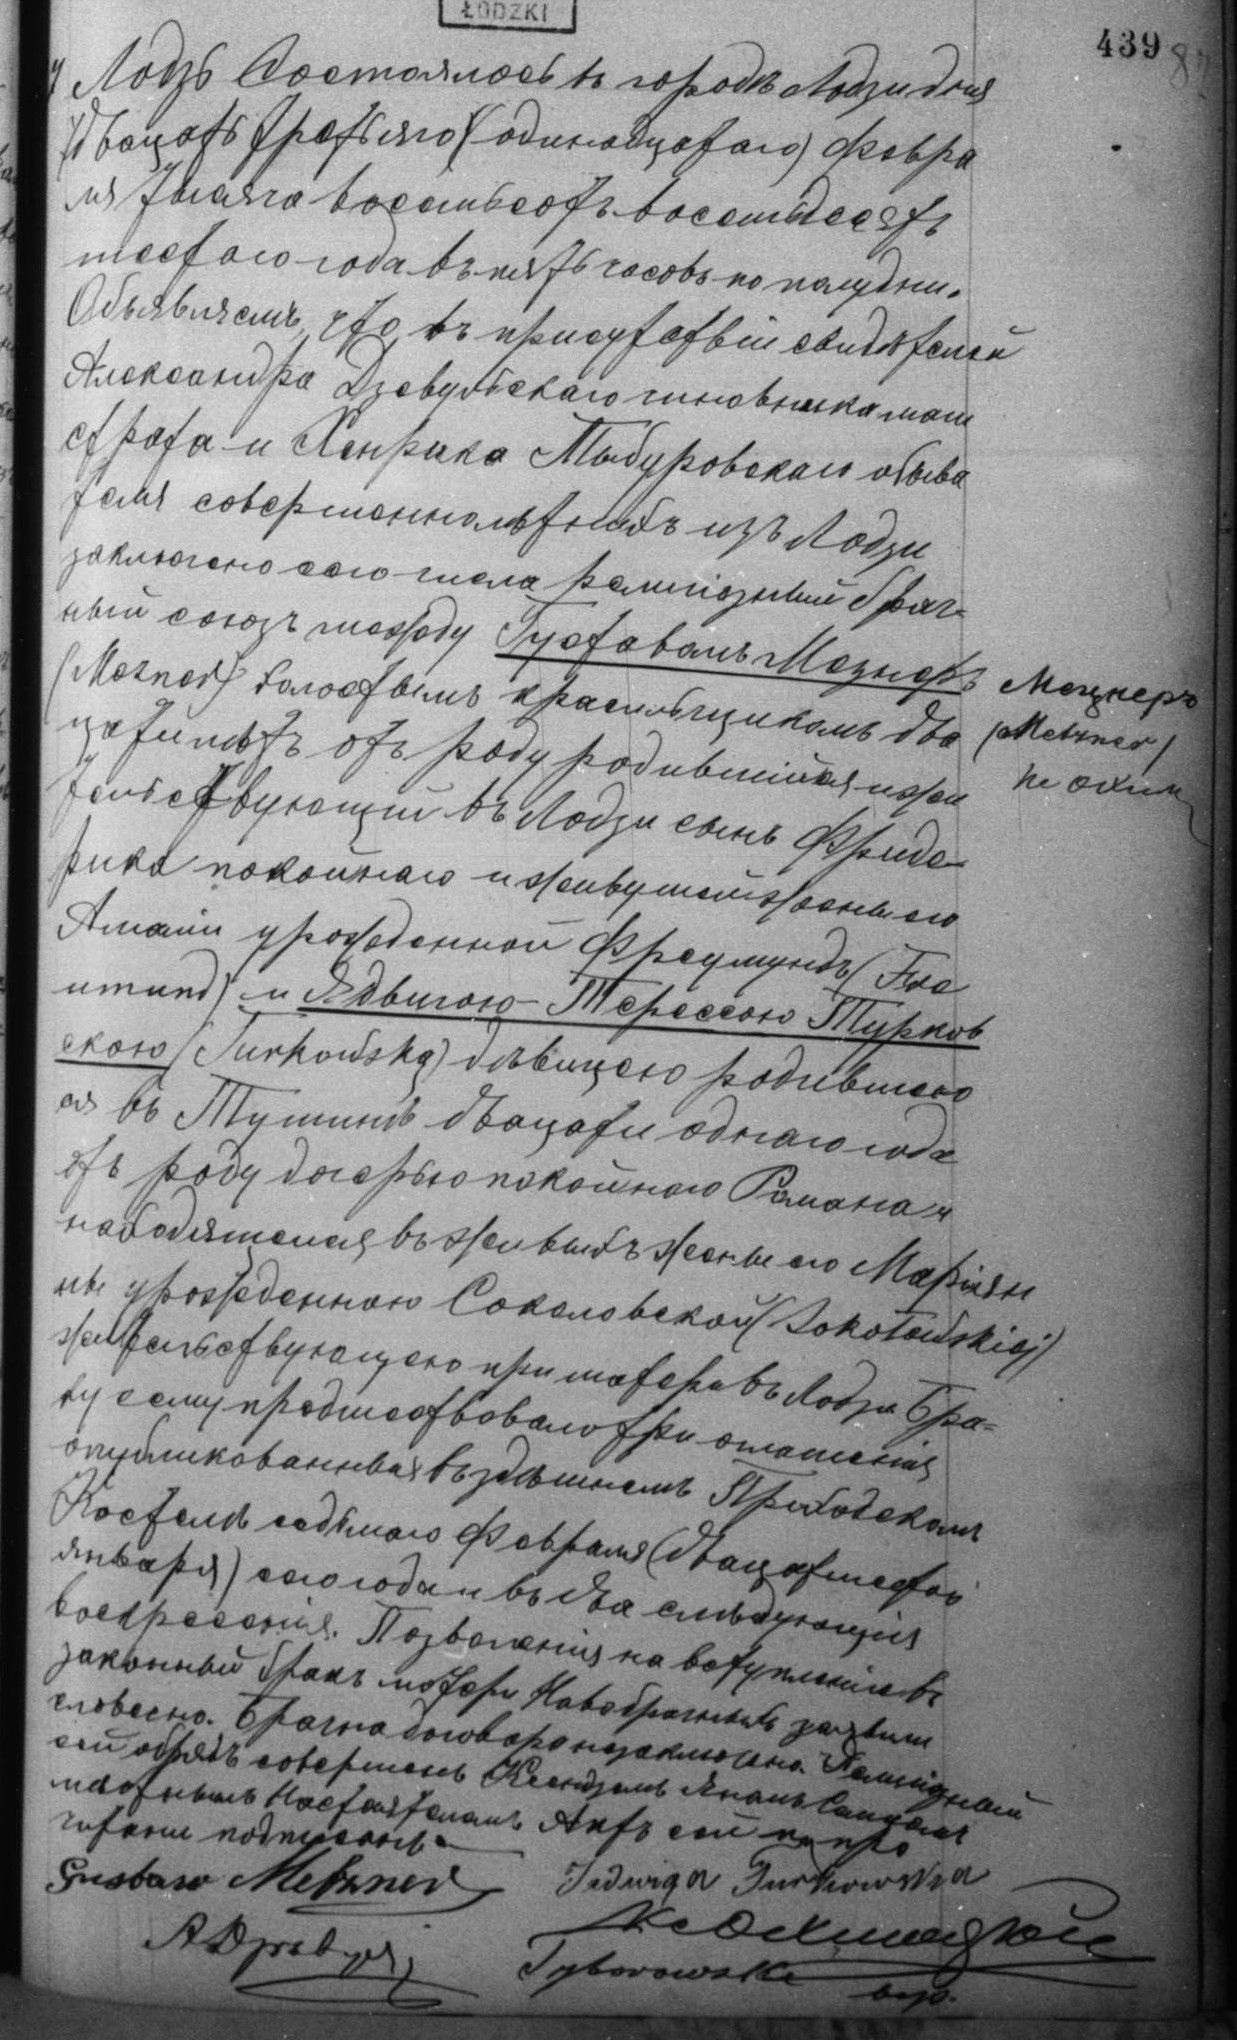 ŁÓDZKI
439
Лодзь Состоялось въ городѣ Лодзи дня
двацать третьяго (одинадцатаго) Февра
ля тысяча восемьсотъ восемдесятъ
шестаго года въ пять часовъ по полудни.
Объявляемъ, что въ присутствіи свидѣтелей
Александра Дзевульскаго чиновника маги
страта и Хенрика Тыбуровскаго обыва
теля совершеннолѣтныхъ изъ Лодзи
заключено сего числа религіозный брач-
ный союзъ между Густавомъ Мезнеръ
(Mezner) холостымъ красильщикомъ два
цати лѣтъ отъ роду родившійся и жи
тельствующій въ Лодзи сынъ Фриде-
рика покойнаго и живущей жены его
Амаліи урожденной Фреумундъ (Fre
umund) и Ядвигою-Терессою Турков
скою (Turkowską) дѣвицею родившею
ся въ Тушинѣ двацати однаго года
отъ роду дочерью покойнаго Романа и
находящейся въ живыхъ жены его Маріян
ны урожденною Соколовской (Sokołowskiej)
жительствующею при матери въ Лодзи Бра-
ку сему предшествовало три оглашенія
опубликованныя въ здѣшнемъ Приходскомъ
Костелѣ седьмаго Февраля (двацатшестаго
января) сего года и въ два слѣдующія
воскресенія. Позволенія на вступленіе въ
законный бракъ матери Новобрачныхъ заявили
словесно. Брачна договора незаключено. Религіозный
сей обрядъ совершенъ Ксендзомъ Яномъ
мѣстнымъ Настоятелемъ Актъ сей по про
читаніи подписанъ.
Мецнеръ
(Metzner)
Gustaw Metzner Jadwiga Turkowska
Tyborowski